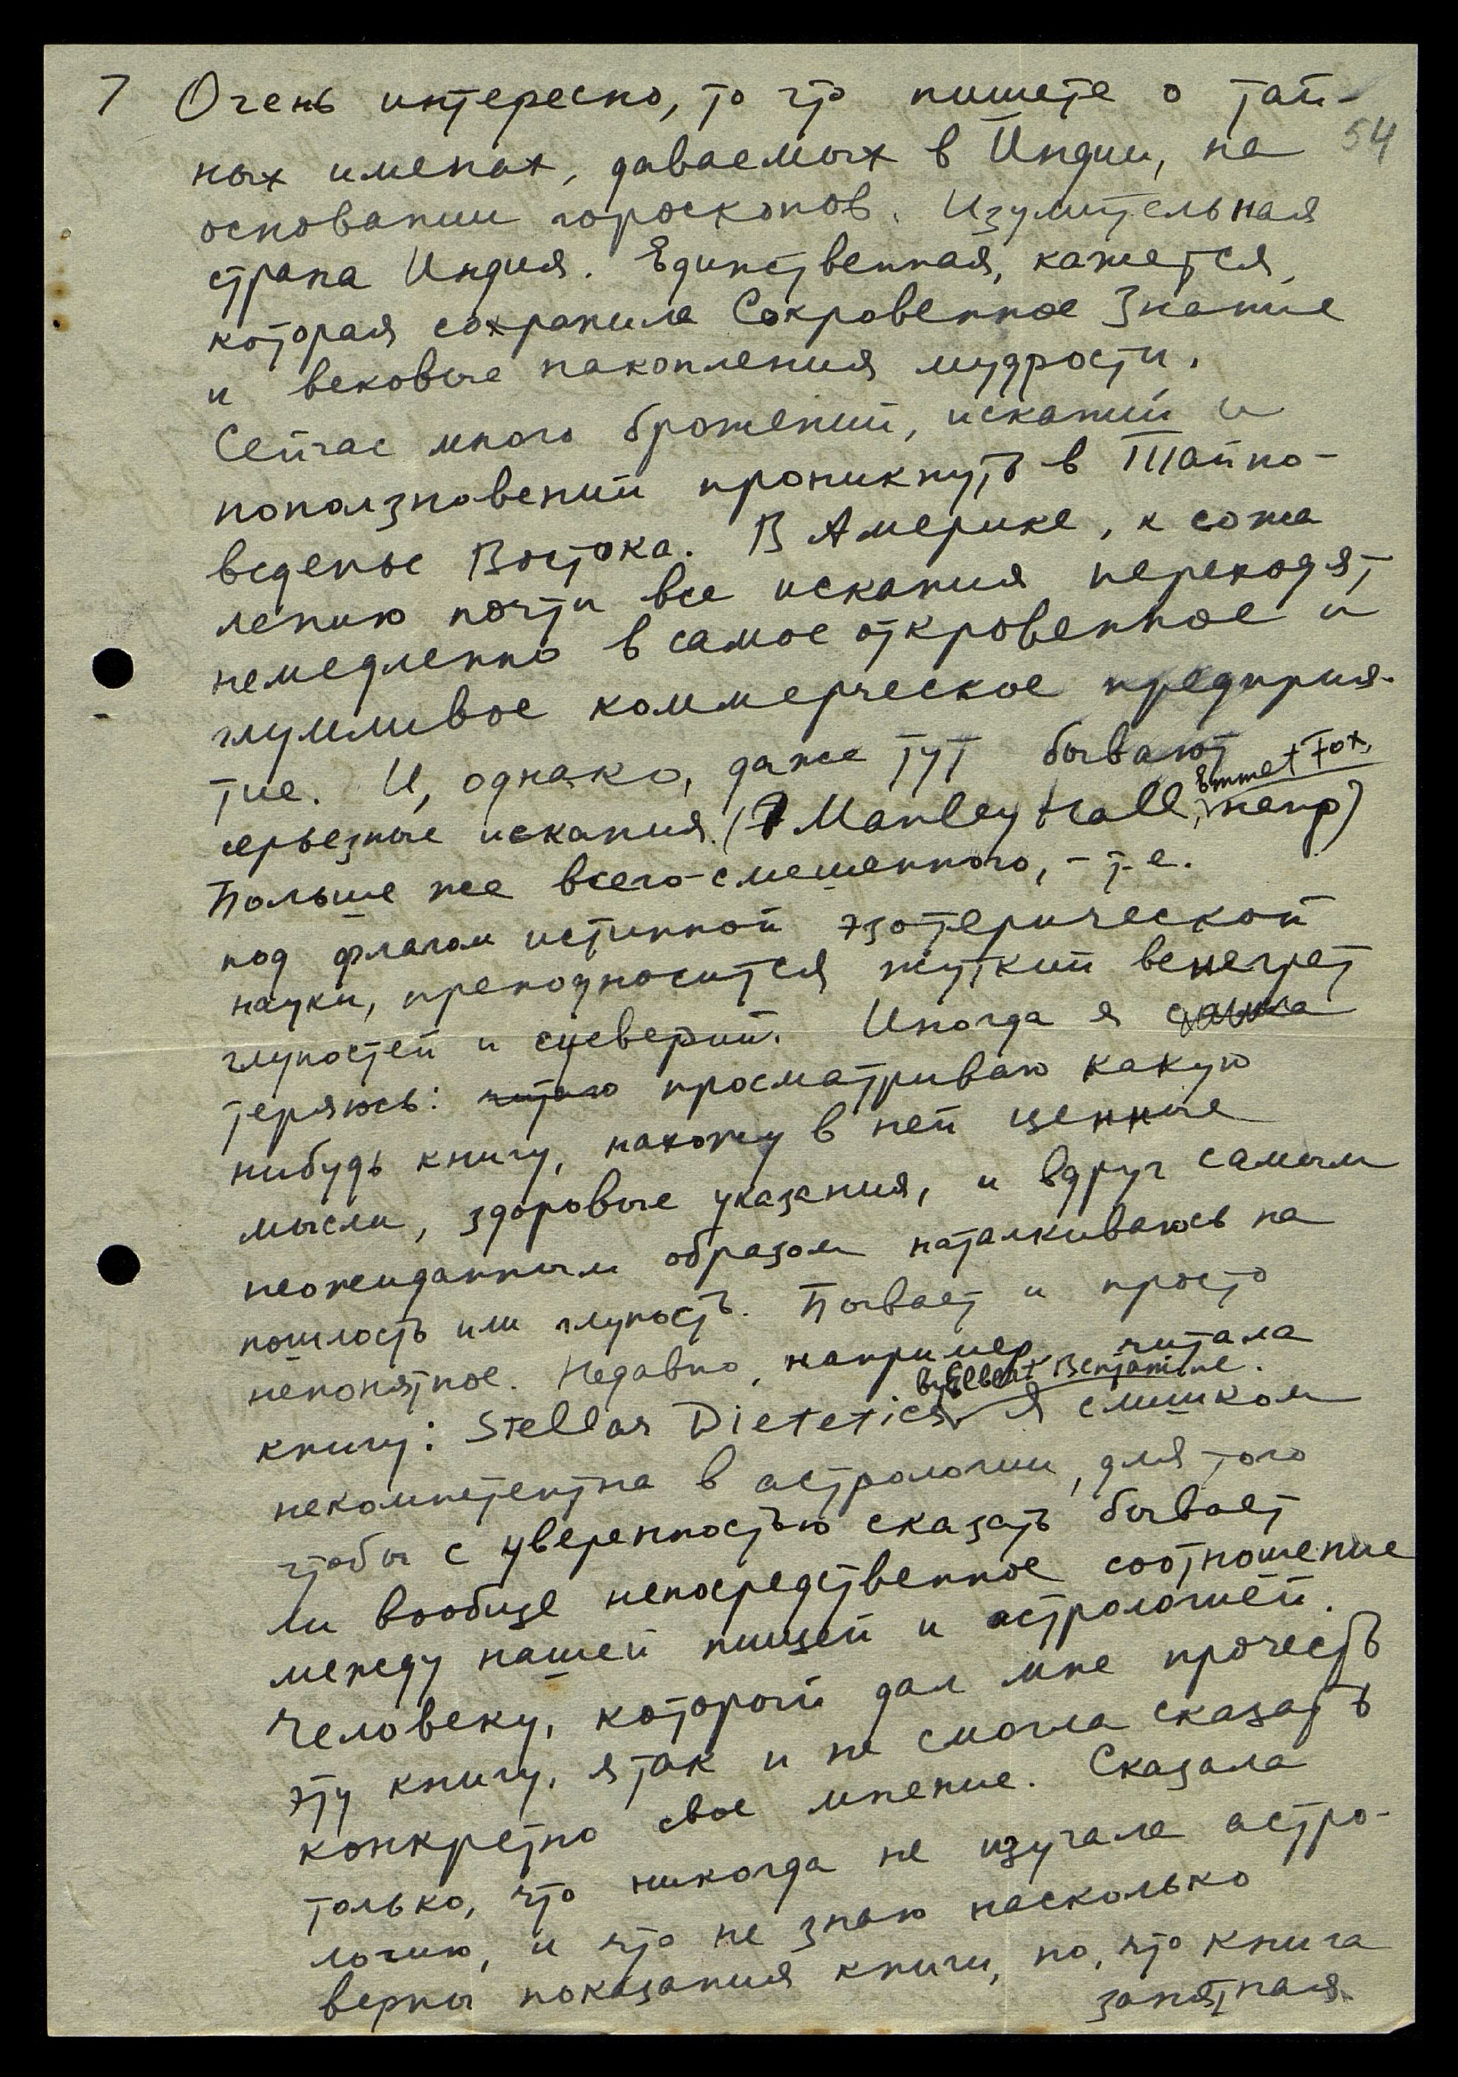 7 Очень интересно, то что пишете о тай-
54
ных именах, даваемых в Индии, на
основании гороскопов. Изумительная
страна Индия. Единственная, кажется,
которая сохранила Сокровенное Знание
и вековые накопления мудрости.
Сейчас много брожений, исканий и
поползновений проникнуть в Тайно-
веденье Востока. В Америке, к сожа
лению почти все искания переходят
немедленно в самое откровенное и
глумливое коммерческое предприя-
тие. И, однако, даже тут бывают
Emmet Fox,
серьезные искания. (Manley Hall, напр)
Больше же всего смешенного, - т.е.
под флагом истинной эзотерической
науки, преподносится жуткий венегрет
глупостей и суеверий. Иногда я сама
теряюсь: читаю просматриваю какую
нибудь книгу, нахожу в ней ценные
мысли, здоровые указания, и вдруг самым
неожиданным образом наталкиваюсь на
пошлость или глупость. Бывает и просто
непонятное. Недавно, например, читала
by Elbert Benjamine.
книгу: Stellar Dietetics Я слишком
некомпетентна в астрологии, для того
чтобы с уверенностью сказать бывает
ли вообще непосредственное соотношение
между нашей пищей и астрологией.
Человеку, который дал мне прочесть
эту книгу, я так и не смогла сказать
конкретно свое мнение. Сказала
только, что никогда не изучала астро-
логию, и что не знаю насколько
верны показания книги, но, что книга
занятная.